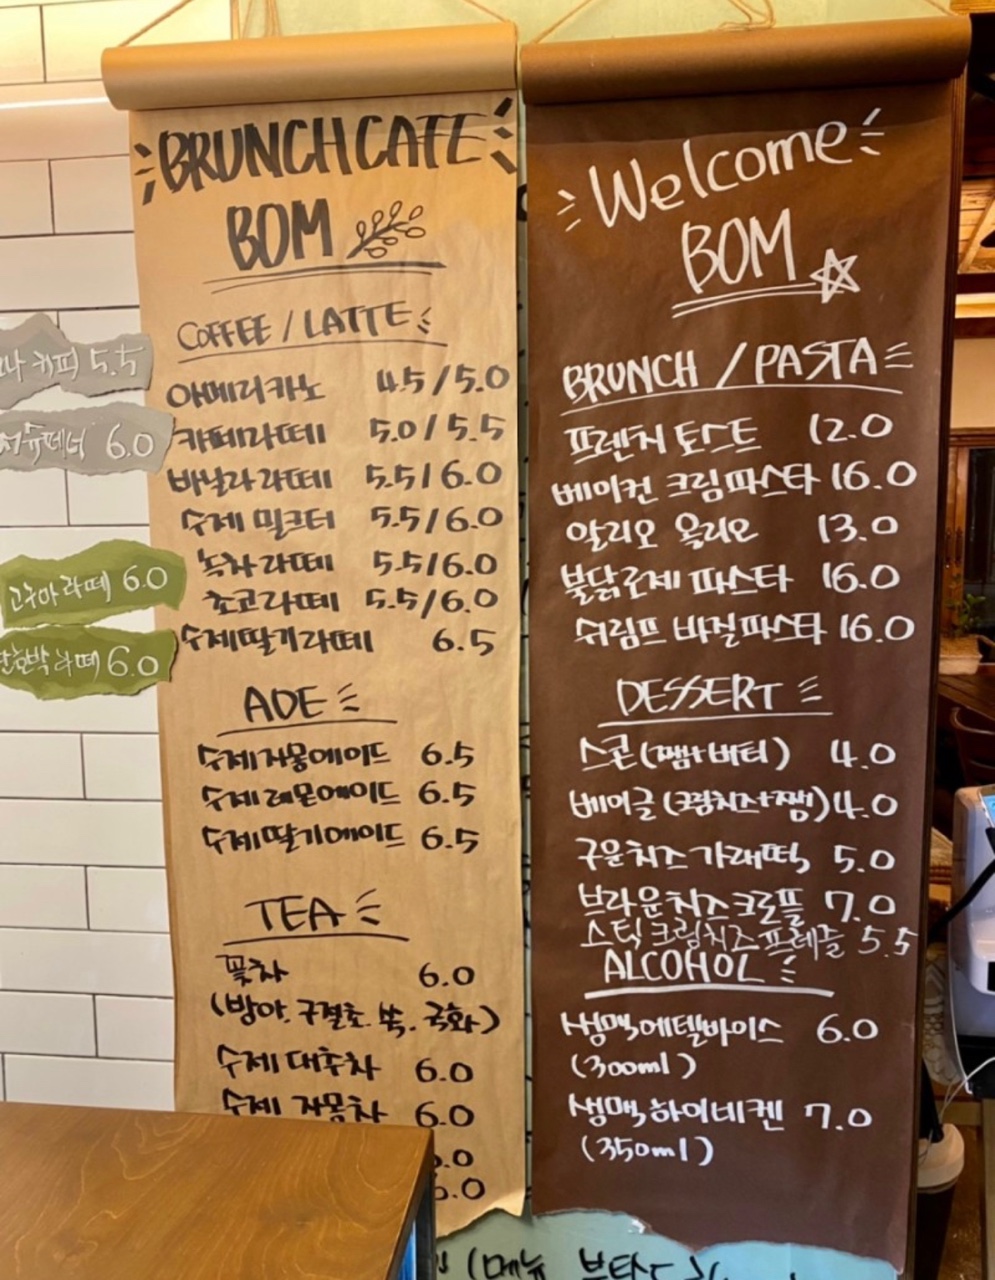 BRUNCH CAFE
BOM
COFFEE / LATTE
아메리카노 4.5 / 5.0
카페라떼 5.0 / 5.5
바닐라 라떼 5.5 / 6.0
수제 밀크티 5.5 / 6.0
녹차 라떼 5.5 / 6.0
초코라떼 5.5 / 6.0
수제딸기라떼 6.5
ADE
수제자몽에이드 6.5
수제레몬에이드 6.5
수제딸기에이드 6.5
TEA
꽃차 6.0
(방아. 구절초. 쑥. 국화)
수제 대추차 6.0
수제 자몽차 6.0
커피 5.5
6.0
고구마라떼 6.0
단호박라떼 6.0
Welcome
BOM
BRUNCH / PASTA
프렌치 토스트 12.0
베이컨 크림파스타 16.0
알리오 올리오 13.0
불닭로제 파스타 16.0
쉬림프 바질파스타 16.0
DESSERT
스콘 (잼+버터) 4.0
베이글 (크림치즈+잼) 4.0
구운치즈가래떡 5.0
브라운치즈크로플 7.0
스틱크림치즈프레즐 5.5
ALCOHOL
생맥에델바이스 6.0
(300ml)
생맥하이네켄 7.0
(350ml)
(메뉴